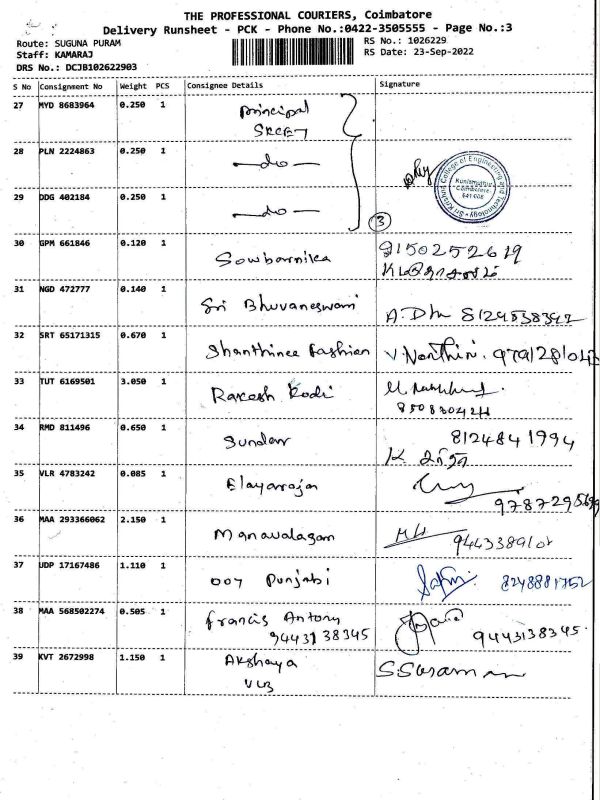 THE PROFESSIONAL COURIERS, Coimbatore
Delivery Runsheet - PCK - Phone No.:0422-3505555 - Page No.:3
Route: SUGUNA PURAM
RS No.: 1026229
Staff: KAMARAJ
RS Date: 23-Sep-2022
DRS No.: DCJB102622903
S No Consignment No Weight PCS Consignee Details Signature
27 MYD 8683964 0.250 1 principal
SKCET
28 PLN 2224863 0.250 1 —do—
College of Engineering and Technology
Sri Krishna
Kuniamuthur
Coimbatore
641 008
29 DDG 402184 0.250 1 —do—
3
30 GPM 661846 0.120 1 Sowbarnika 9150252619
31 NGD 472777 0.140 1 Sri Bhuvaneswari
32 SRT 65171315 0.670 1 Shanthinee Fashion
33 TUT 6169501 3.050 1 Rakesh Kodi
34 RMD 811496 0.650 1 Sundar 8124841994
35 VLR 4783242 0.085 1 Elayaraja
36 MAA 293366062 2.150 1 Manavalagan
37 UDP 17167486 1.110 1 007 Punjabi 8248881752
38 MAA 568502274 0.505 1 Francis Antony
9443138345 9443138345
39 KVT 2672998 1.150 1 Akshaya